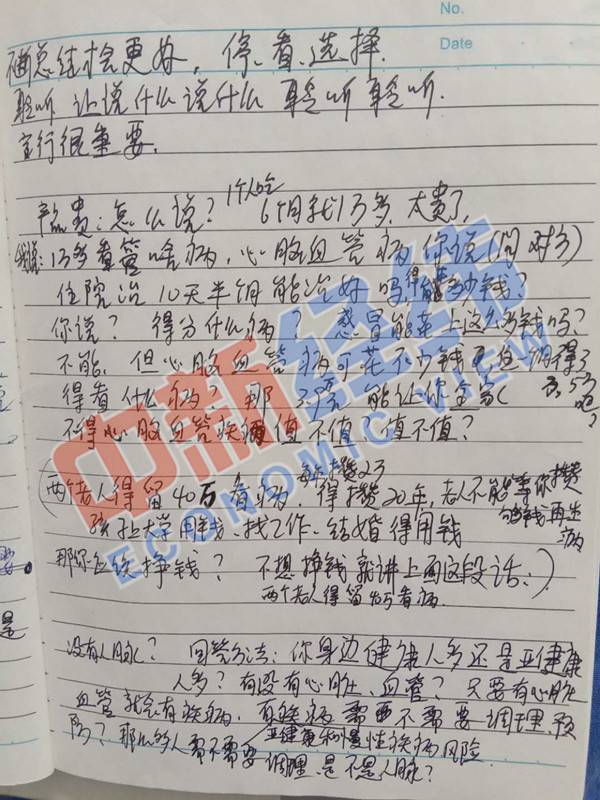 No.
Date
画总结才会更好，停、看、选择.
聆听 让说什么说什么 聆听聆听.
言行很重要.
产品贵：怎么说？ 1个人吃 6个月就1万多，太贵了.
我说：1万多看管啥病，心脑血管病，你说（问对方）
住院治10天半月能治好吗，得花多少钱？
你说？ 得分什么病？ 感冒能花上这么多钱吗？
不能，但心脑血管病可花不少钱
得看什么病？ 那 能让你全家
不得心脑血管疾病值不值？值不值？
每年攒2万
两个老人得留40万看病，得攒20年，老人不能等你攒
够钱再生病
孩子上大学用钱、找工作、结婚得用钱
那你还挣钱？ 不想挣钱就讲上面这段话：）
两个老人得留40万看病.
没有人脉？ 回答方法：你身边健康人多还是亚健康
人多？有没有心脏、血管？只要有心脏
血管就会有疾病，有疾病需不需要调理、预
防？那么多人需不需要调理，是不是人脉？
亚健康和慢性疾病风险
中新经纬
ECONOMIC VIEW